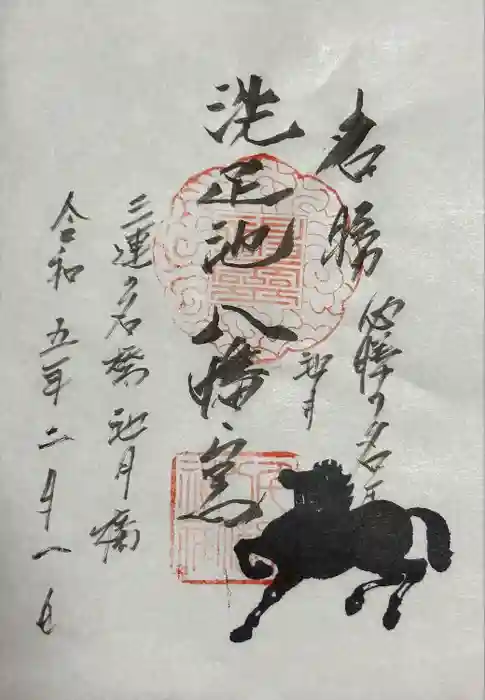 名勝
必勝の名馬
池月
洗足池八幡宮
三連の名橋 池月橋
令和五年二月一日